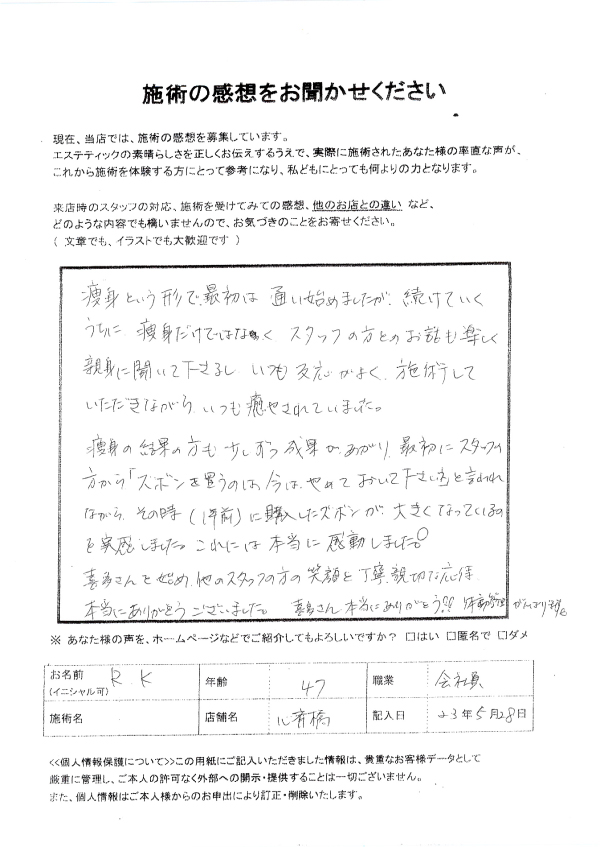 施術の感想をお聞かせください
現在、当店では、施術の感想を募集しています。
エステティックの素晴らしさを正しくお伝えするうえで、実際に施術されたあなた様の率直な声が、
これから施術を体験する方にとって参考になり、私どもにとっても何よりの力となります。
来店時のスタッフの対応、施術を受けてみての感想、他のお店との違い など、
どのような内容でも構いませんので、お気づきのことをお寄せください。
( 文章でも、イラストでも大歓迎です )
痩身という形で、最初は 通い始めましたが、続けていく
うちに 痩身だけではなく スタッフの方とのお話も楽しく
親身に聞いて下さるし いつも 反応がよく、施術して
いただきながら、いつも癒やされていました。
痩身の結果の方も 少しずつ 成果が、あがり、最初に スタッフの
方から「ズボンを買うのは、今は、やめて おいて下さいね」と言われ
ながら、その時 (1年前) に購入したズボンが、大きくなっているの
を実感しました。これには 本当に 感動しました。
喜多さんを始め、他のスタッフの方の 笑顔と丁寧、親切な応待
本当にありがとうございました。 喜多さん、本当にありがとう!! がんばります。
※ あなた様の声を、ホームページなどでご紹介してもよろしいですか? □はい □匿名で □ダメ
お名前 (イニシャル可) R K 年齢 47 職業 会社員
施術名 店舗名 心斎橋 記入日 23年5月28日
<<個人情報保護について>>この用紙にご記入いただきました情報は、貴重なお客様データとして
厳重に管理し、ご本人の許可なく外部への開示・提供することは一切ございません。
また、個人情報はご本人様からのお申出により訂正・削除いたします。